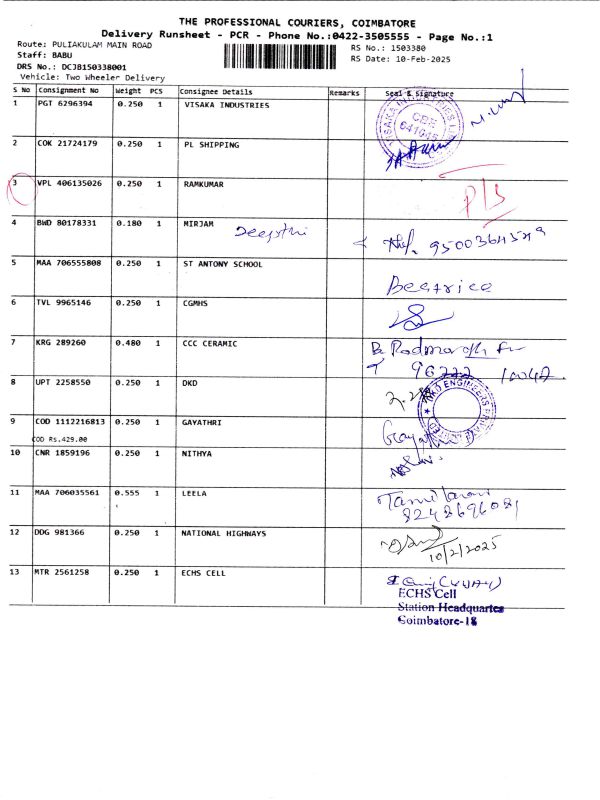 THE PROFESSIONAL COURIERS, COIMBATORE
Delivery Runsheet - PCR - Phone No.:0422-3505555 - Page No.:1
Route: PULIAKULAM MAIN ROAD
RS No.: 1503380
Staff: BABU
RS Date: 10-Feb-2025
DRS No.: DCJB150338001
Vehicle: Two Wheeler Delivery
S No Consignment No Weight PCS Consignee Details Remarks Seal & Signature
1 PGT 6296394 0.250 1 VISAKA INDUSTRIES
2 COK 21724179 0.250 1 PL SHIPPING
3 VPL 406135026 0.250 1 RAMKUMAR
4 BWD 80178331 0.180 1 MIRJAM Deepthi
5 MAA 706555808 0.250 1 ST ANTONY SCHOOL Beatrice
6 TVL 9965146 0.250 1 CGMHS
7 KRG 289260 0.480 1 CCC CERAMIC
8 UPT 2258550 0.250 1 DKD
9 COD 1112216813 0.250 1 GAYATHRI Gayathri
COD Rs.429.00
10 CNR 1859196 0.250 1 NITHYA
11 MAA 706035561 0.555 1 LEELA
12 DDG 981366 0.250 1 NATIONAL HIGHWAYS
10/2/2025
13 MTR 2561258 0.250 1 ECHS CELL
ECHS Cell
Station Headquarter
Coimbatore-18